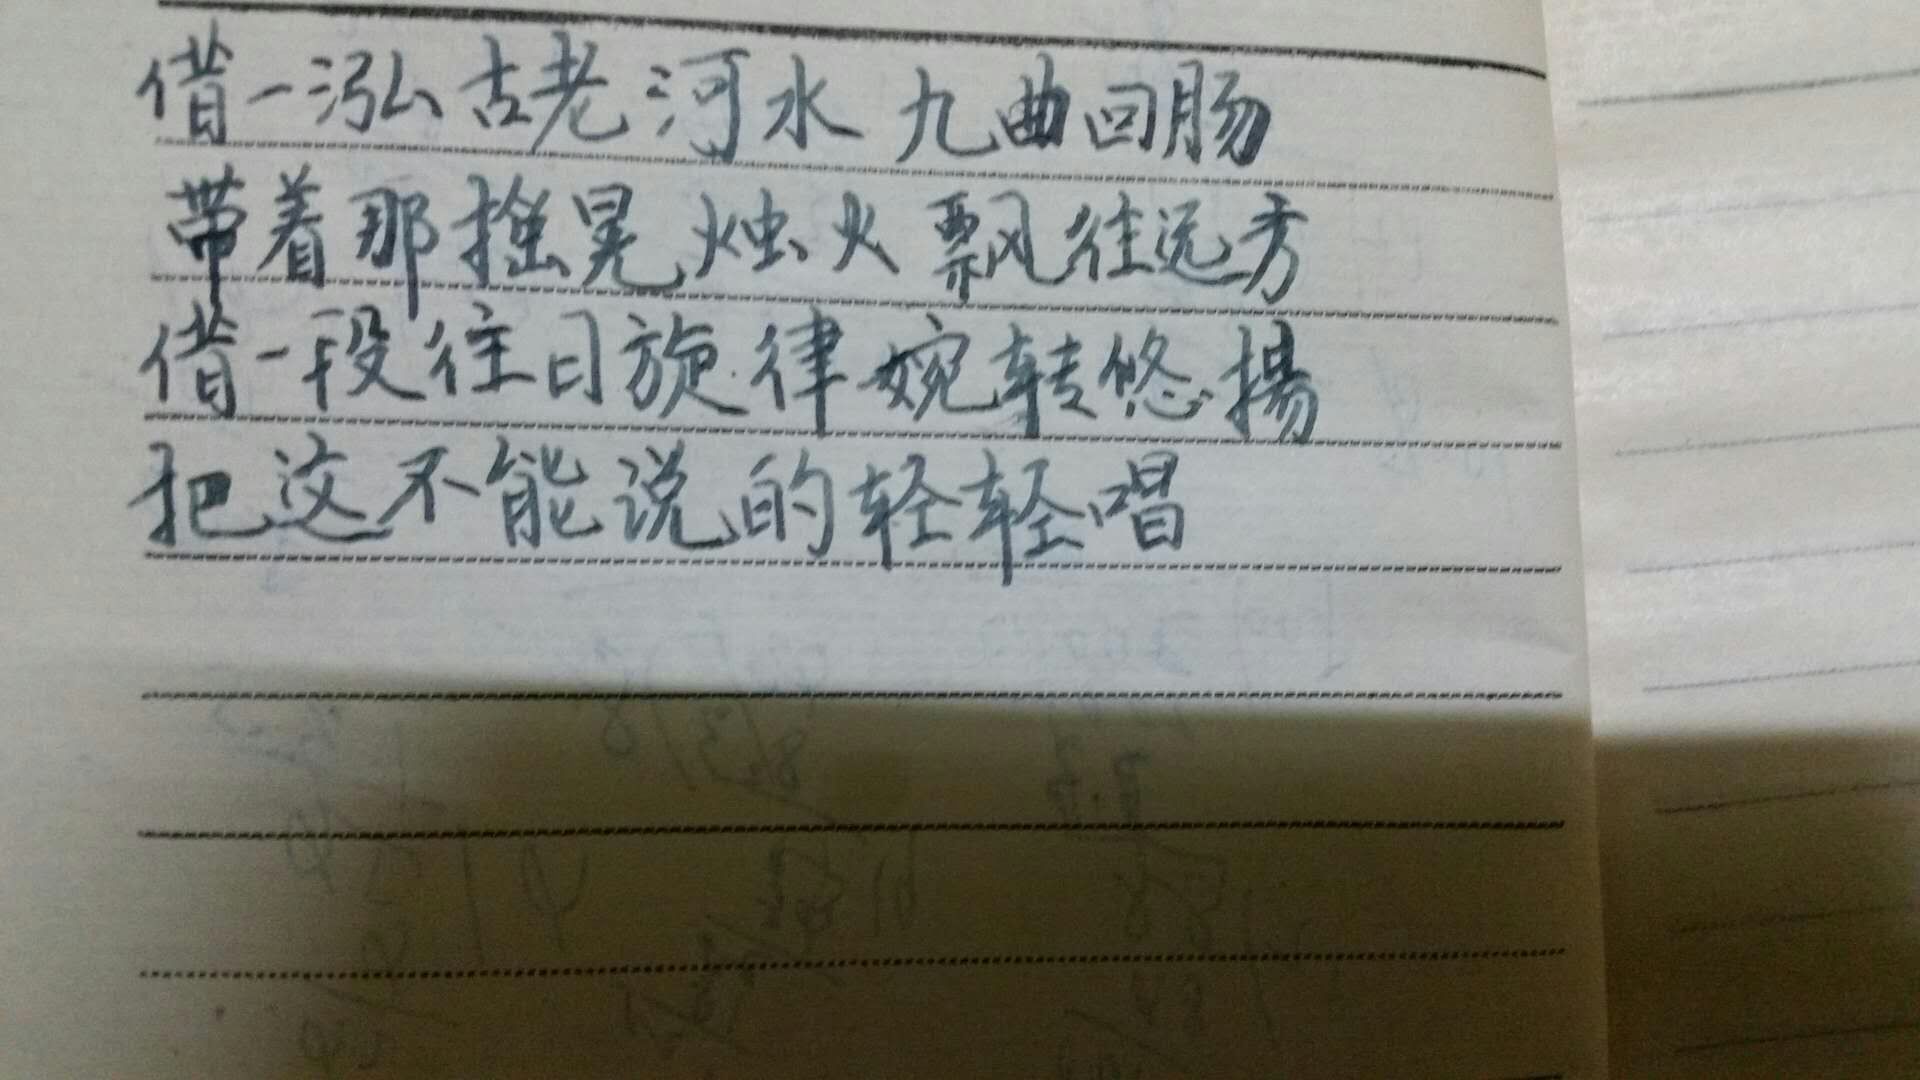 借一泓古老河水 九曲回肠
带着那摇晃烛火 飘往远方
借一段往日旋律 婉转悠揚
把这不能说的轻轻唱